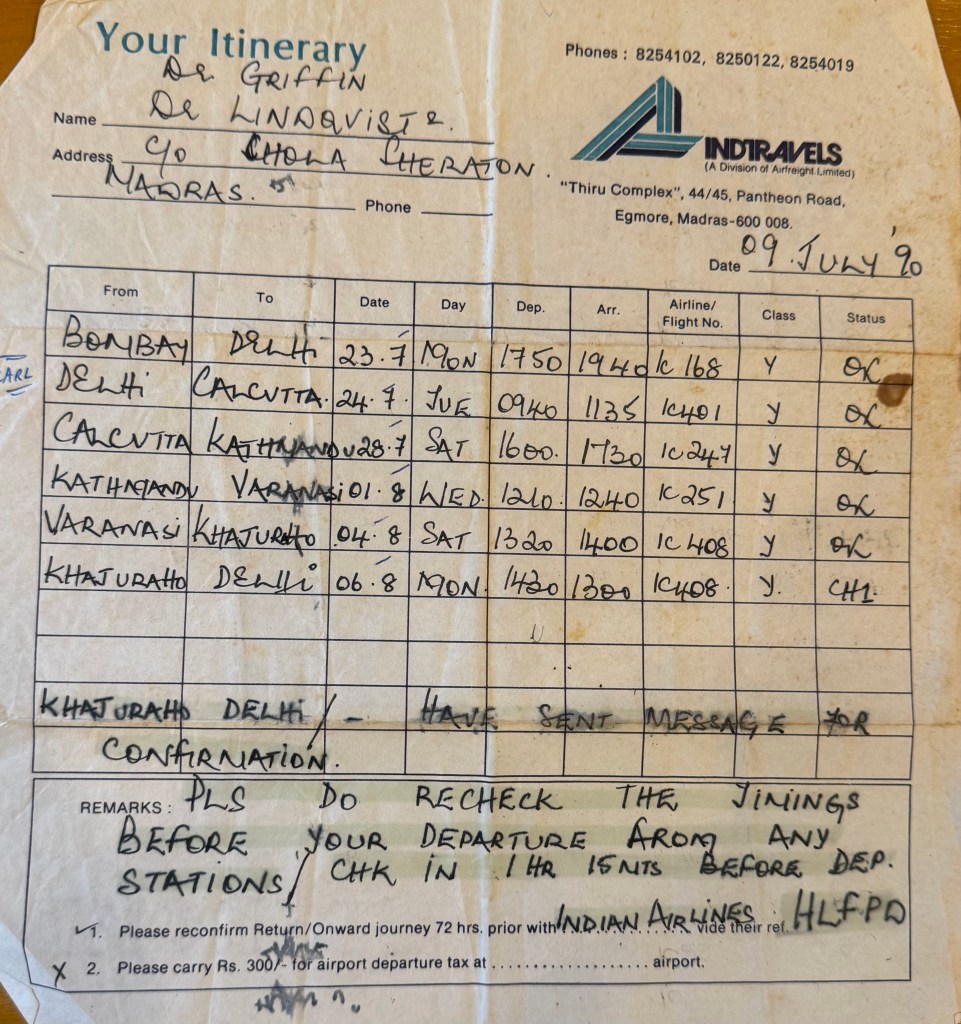 Your Itinerary
Phones : 8254102, 8250122, 8254019
Dr. GRIFFIN
Name Dr LINDQVIST
Address C/O CHOLA SHERATON.
MADRAS.
Phone
INDTRAVELS
(A Division of Airfreight Limited)
"Thiru Complex", 44/45, Pantheon Road,
Egmore, Madras-600 008.
Date 09. JULY '90
From To Date Day Dep. Arr. Airline/ Flight No. Class Status
BOMBAY DELHI 23.7 MON 1750 1940 IC 168 Y OK
DELHI CALCUTTA. 24.7. TUE 0940 1135 IC401 Y OK
CALCUTTA KATHMANDU 28.7 SAT 1600. 1730 IC247 Y OK
KATHMANDU VARANASI 01.8 WED. 1210. 1240 IC251 Y OK
VARANASI KHAJURAHO 04.8 SAT 1320 1400 IC 408 Y OK
KHAJURAHO DELHI 06.8 MON. 1430 1300 IC408. Y.
KHAJURAHO DELHI / - HAVE SENT MESSAGE FOR
CONFIRMATION.
REMARKS : PLS DO RECHECK THE TIMINGS
BEFORE YOUR DEPARTURE FROM ANY
STATIONS / CHK IN 1 HR 15 MTS BEFORE DEP.
1. Please reconfirm Return/Onward journey 72 hrs. prior with INDIAN AIRLINES vide their ref. HLFPD
X 2. Please carry Rs. 300/- for airport departure tax at .................... airport.